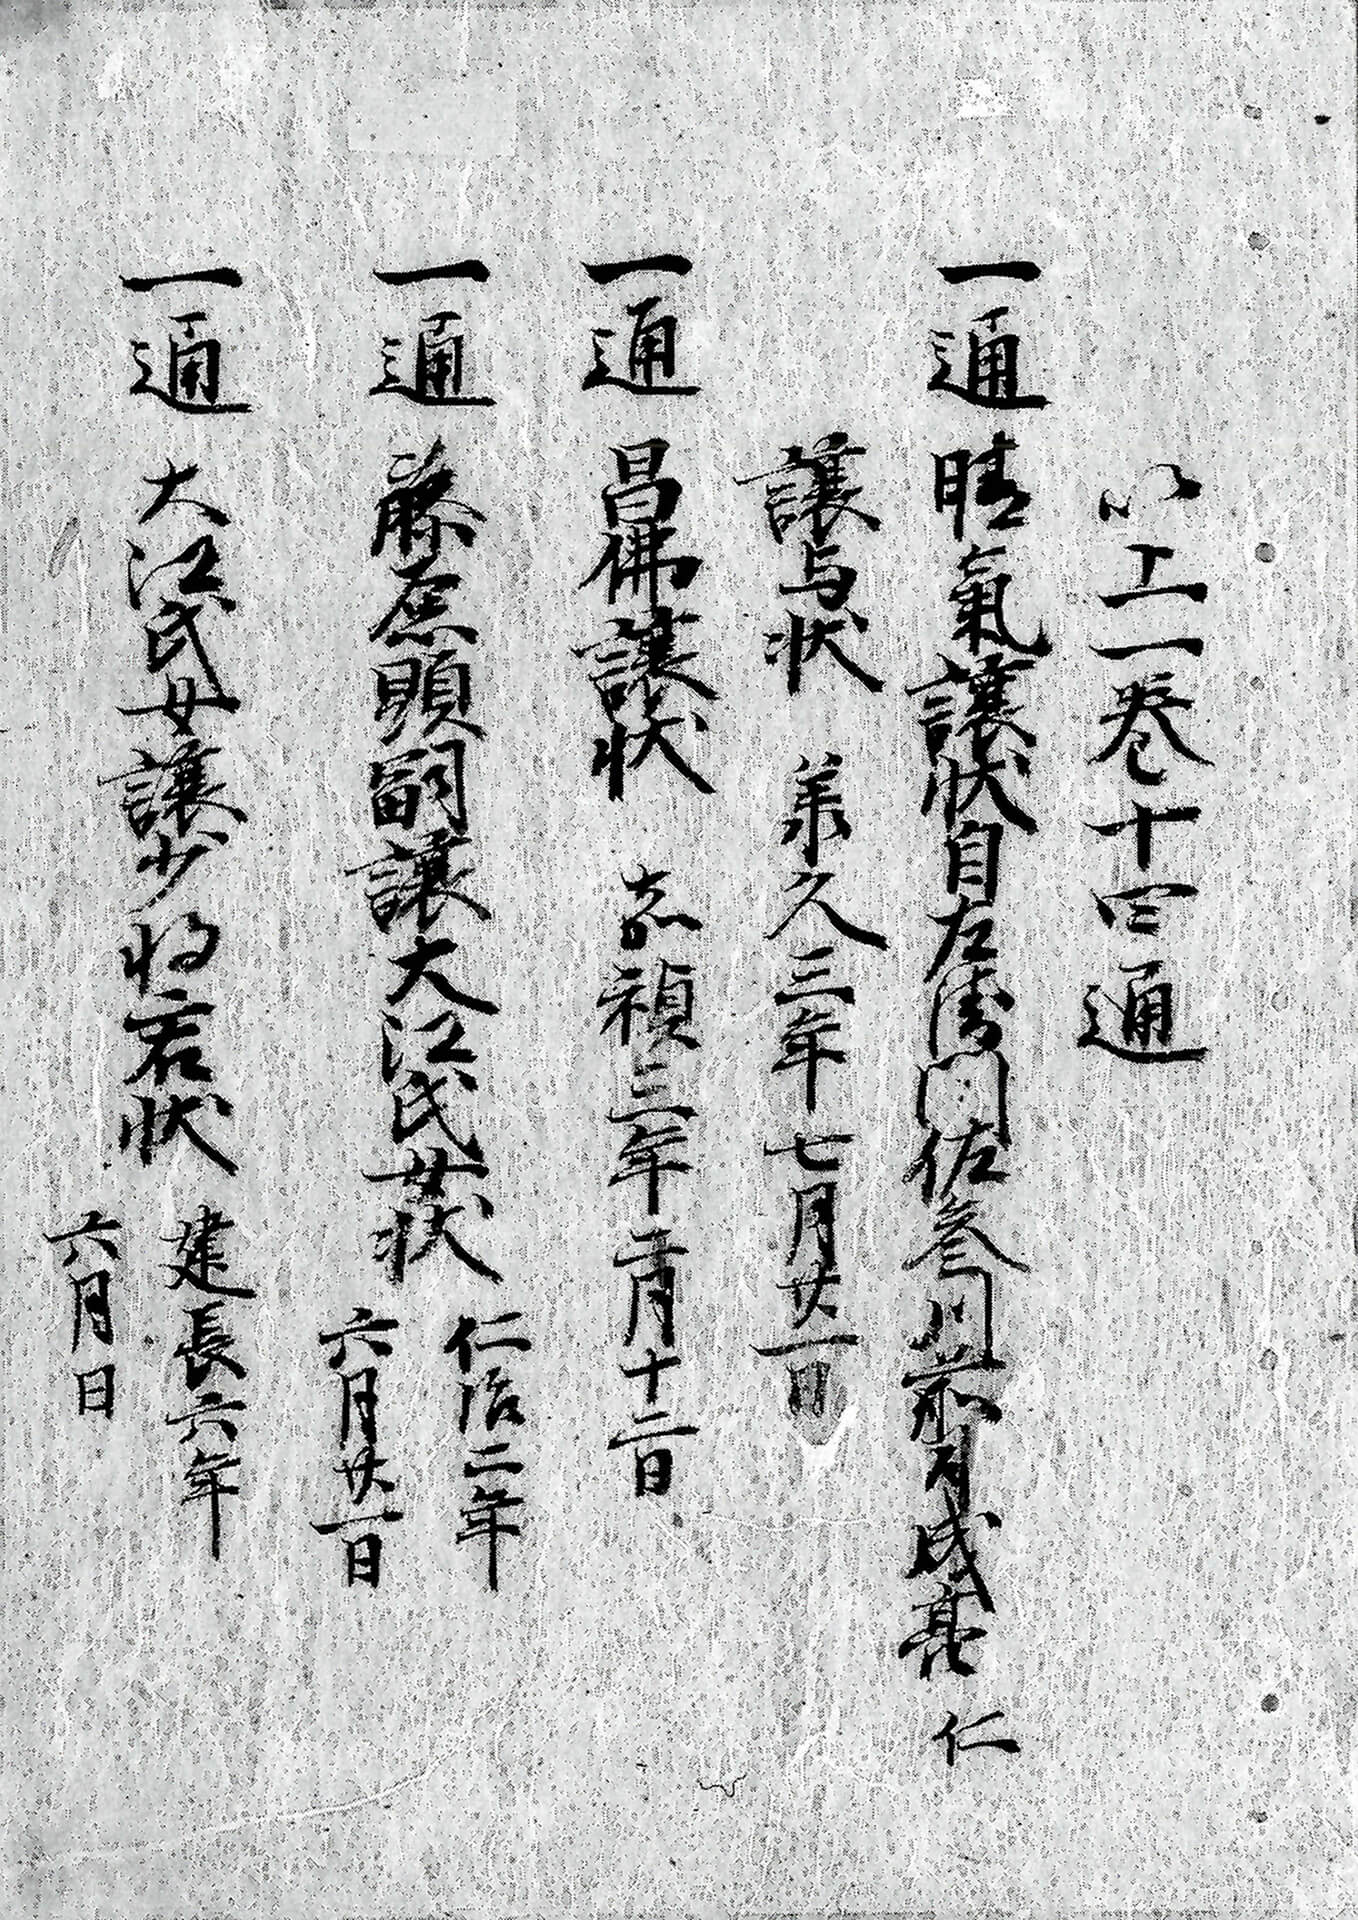 以上一巻十四通
一通 晴氣讓状自左衛門佐参川前司成亮仁
讓与状 承久三年七月廿一日
一通 昌佛讓状 嘉禎三年二月十二日
一通 藤原顕嗣讓大江氏女状 仁治二年
六月廿一日
一通 大江氏女讓少将君状 建長六年
六月日